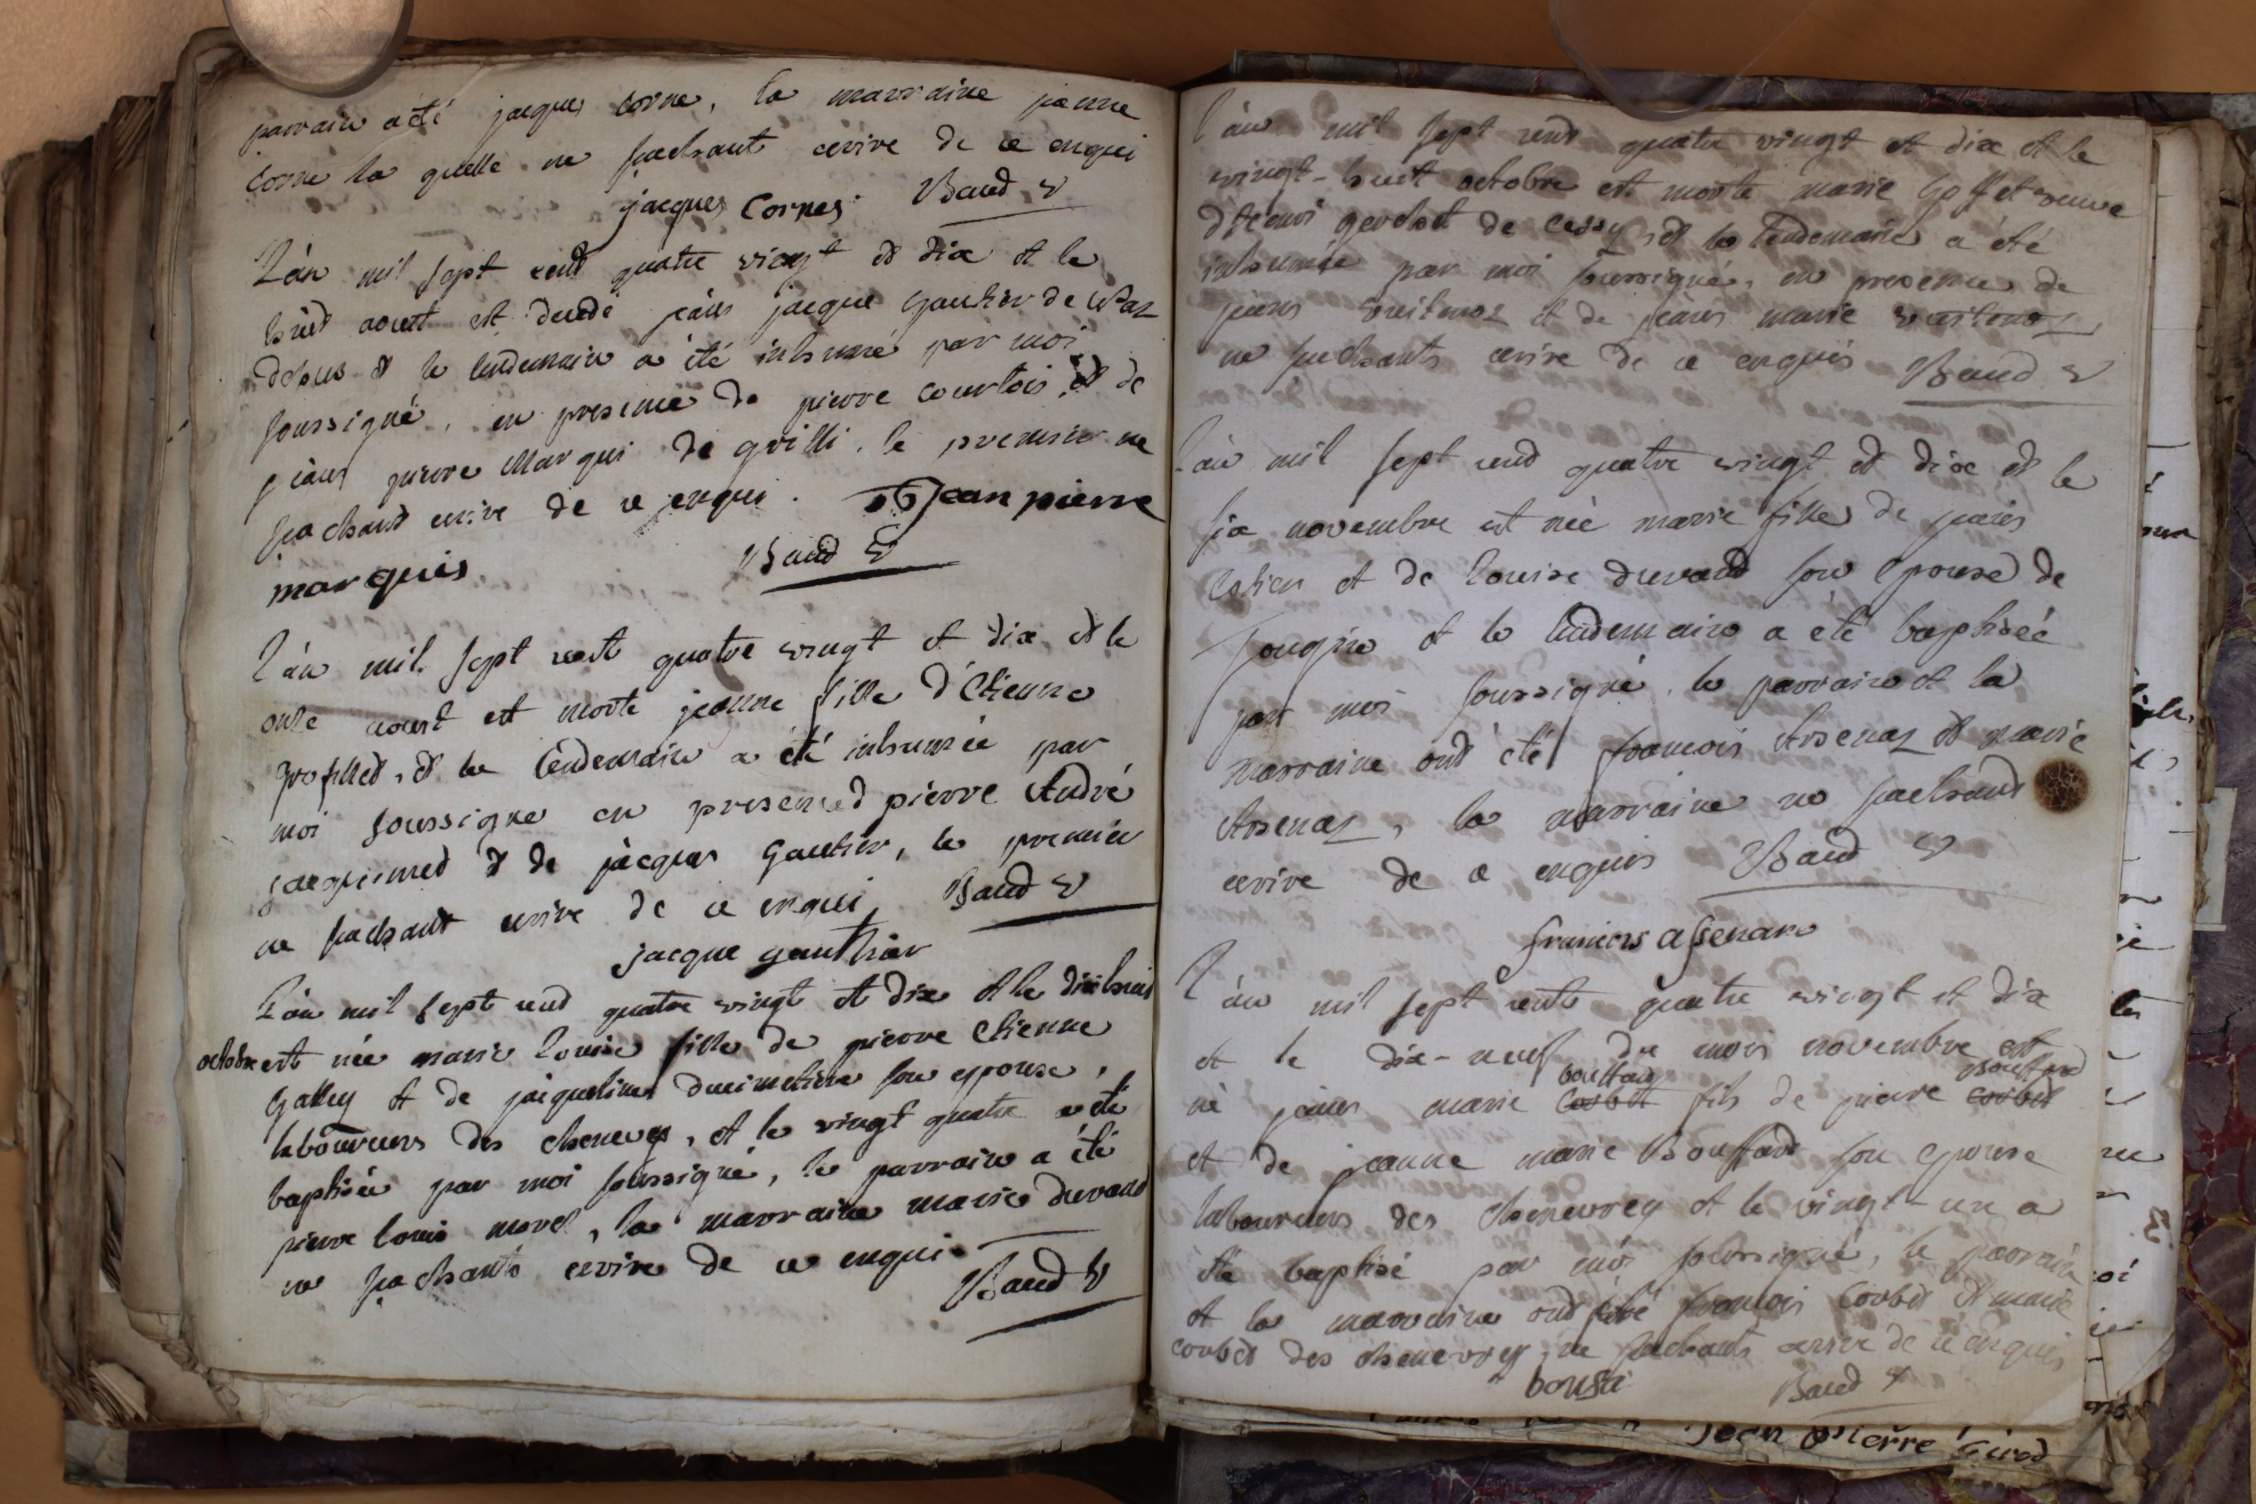 parrain a été jacques corne, la marraine jeanne
corne la quelle ne sachant ecrire de ce enqui
jacques Cornes Baud
L'an mil sept cent quatre vingt et dix et le
huit aoust est decedé jean jacque Gautier de
dessus et le lendemain a été inhumé par moi
soussigné, en presence de pierre courtois, et de
jean pierre Marqui de grilli, le premier ne
sachant ecrire de ce enqui. Jean pierre
marquis Baud
L'an mil sept cent quatre vingt et dix et le
onze aoust est morte jeanne fille d'Etienne
grosfillet, et le lendemain a été inhumée par
moi soussigne en presence d pierre André
jacquemed et de jacques Gautier, le premier
ne sachant ecrire de ce enqui Baud
jacque gauthier
L'an mil sept cent quatre vingt et dix et le dixhuit
octobre est née marie louise fille de pierre Etienne
Galley et de jacqueline ducimetiere son epouse,
laboureurs des chenevey, et le vingt quatre a été
baptisée par moi soussigné, le parrain a été
pierre louis morel, la marraine marie duvand
ne sachants ecrire de ce enqui
Baud
L'an mil sept cent quatre vingt et dix et le
vingt-huit octobre est morte marie Goffet veuve
d'henri de Cessy, et le lendemain a été
inhumée par moi soussigné, en presence de
jean et de jean marie
ne sachants ecrire de ce enquis Baud
L'an mil sept cent quatre vingt et dix et le
six novembre est née marie fille de jean
Estier et de louise duvand son epouse de
Tougin et le lendemain a été baptisée
par moi soussigné, le parrain et la
marraine ont été francois Arsenaz et marie
Arsenaz, la marraine ne sachant
ecrire de ce enquis Baud
francois asenare
L'an mil sept cents quatre vingt et dix
et le dix-neuf du mois novembre est
bouffard bouffard
né jean marie corbet fils de pierre corbet
et de jeanne marie Bouffard son epouse
laboureurs des chenevrey et le vingt-un a
été baptisé par moi soussigné, le parrain
et la marraine ont été francois Corbet et marie
corbet des chenevrey, ne sachants ecrire de ce enquis
Baud
Jean Pierre Girod